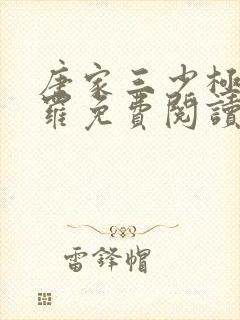 唐家三少極
羅免費閱讀
雷鋒帽